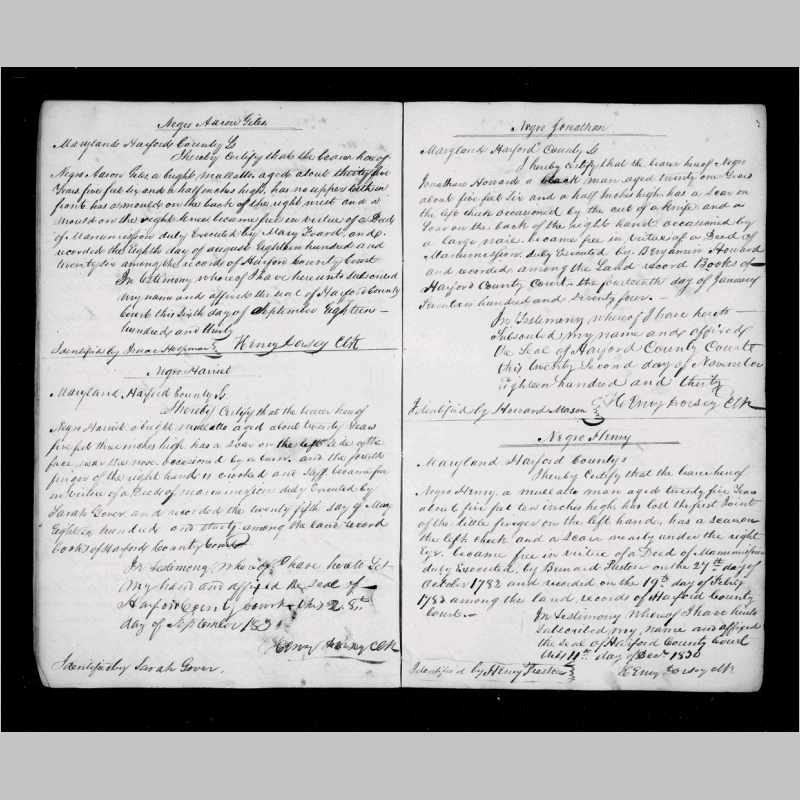 Negro Aaron Giles
Maryland Harford County Sc
I hereby certify that the bearer hereof
Negro Aaron Giles a bright mullatto aged about thirty five
Years five feet six and a half inches high, has no upper teeth in
front has a mould on the back of the right wrist and a
mould on the right knee became free in virtue of a Deed
of Manumission duly Executed by Mary Foard, and
recorded the Eighth day of august Eighteen hundred and
twenty six among the records of Harford County Court
In testimony whereof I have hereunto subscribed
my name and affixed the seal of Harford County
Court this Sixth day of September Eighteen
hundred and thirty
Identified by Henry Dorsey Clk
Negro Harriet
Maryland Harford County Sc
I hereby Certify that the bearer hereof
Negro Harriet a bright mullatto aged about twenty Years
five feet three inches high has a Scar on the left side of the
face near the nose occasioned by a burn and the fourth
finger of the right hand is crooked and stiff became free
in virtue of a Deed of manumission duly Executed by
Sarah Gover and recorded the twenty fifth day of May
Eighteen hundred and thirty among the land record
books of Harford County Court
In testimony whereof I have hereto Set
my hand and affixed the Seal of
Harford County Court this 28th
day of September
Henry Dorsey Clk
Identified by Sarah Gover.
Negro Jonathan
Maryland Harford County Sc
I hereby certify that the bearer hereof Negro
Jonathan Howard a black man aged twenty one Years
about five feet Six and a half Inches high has a Scar on
the left cheek occasioned by the cut of a knife and a
Scar on the back of the right hand occasioned by
a large nail became free in virtue of a Deed of
Manumission duly Executed by Benjamin Howard
and recorded among the Land record Books of
Harford County Court the fourteenth day of January
hundred and
In Testimony whereof I have hereto
subscribed my name and affixed
the Seal of Harford County Court
this twenty Second day of November
Eighteen hundred and thirty
Identified by Howard Mason Henry Dorsey Clk
Negro Henry
Maryland Harford County Sc
I hereby Certify that the bearer hereof
Negro Henry a mullatto man aged twenty five Years
about five feet ten inches high has lost the first Joint
of the little finger on the left hand, has a scar on
the left cheek and a Scar nearly under the right
Eye. became free in virtue of a Deed of Manumission
duly Executed by Presbury on the 27th day of
October 1782 and recorded on the 19th day of Feby
1783 among the land records of Harford County
Court.
In Testimony whereof I have hereto
subscribed my name and affixed
the Seal of Harford County Court
this 11th day of Decr 1830
Identified by Henry Henry Dorsey Clk